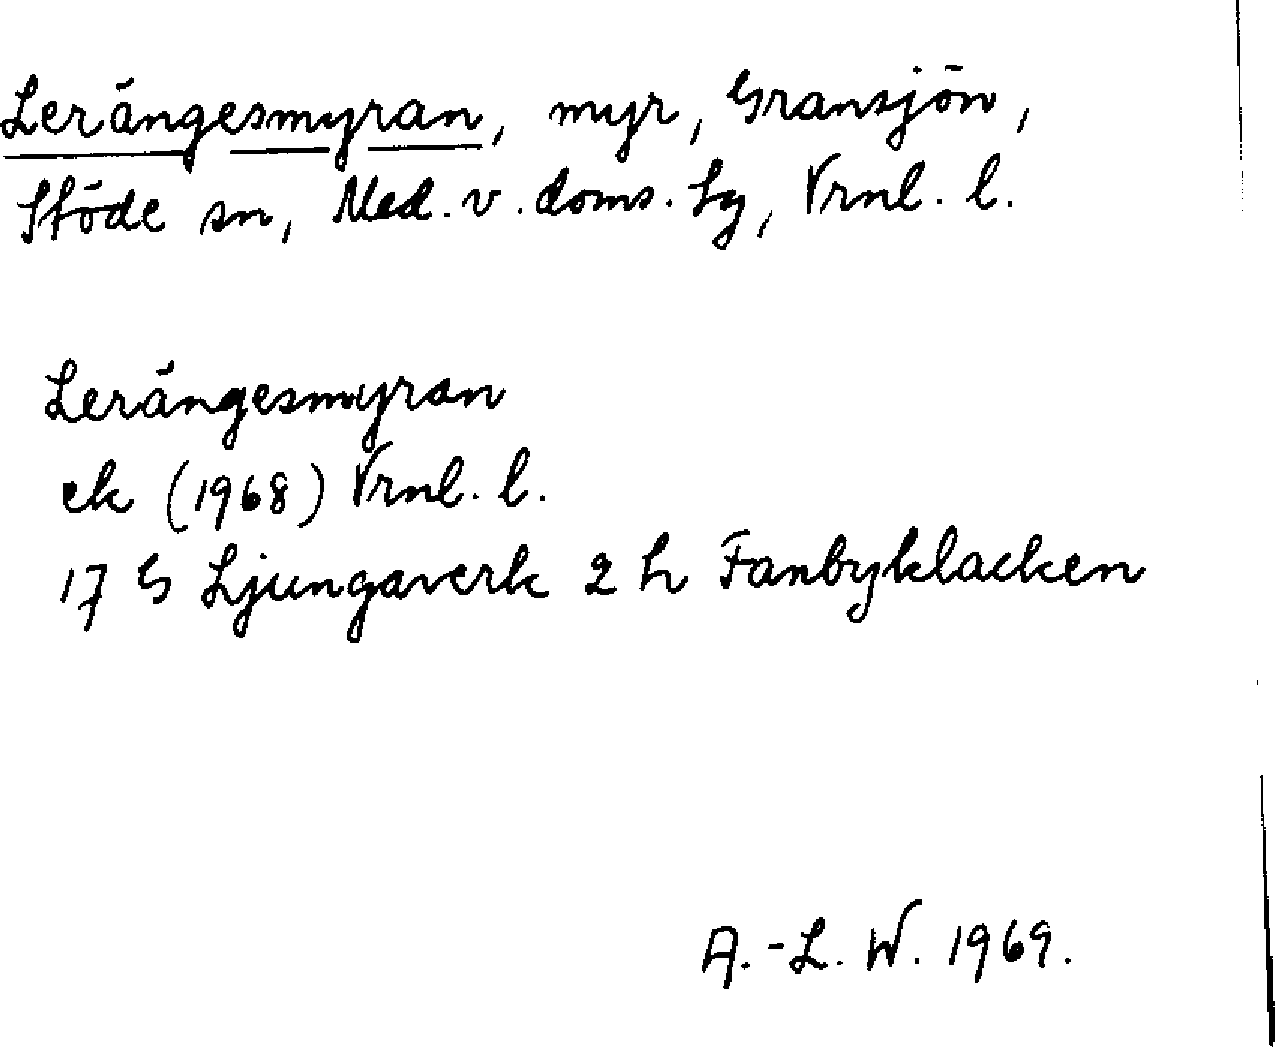 Lerängesmyran, myr, Gransjön,
Stöde sn, Med. v. doms. tg, Vrnl. l.
Lerängesmyran
ek (1968) Vrnl. l.
17 G Ljungaverk 2 h Fanbyklacken
A.-L. W. 1969.